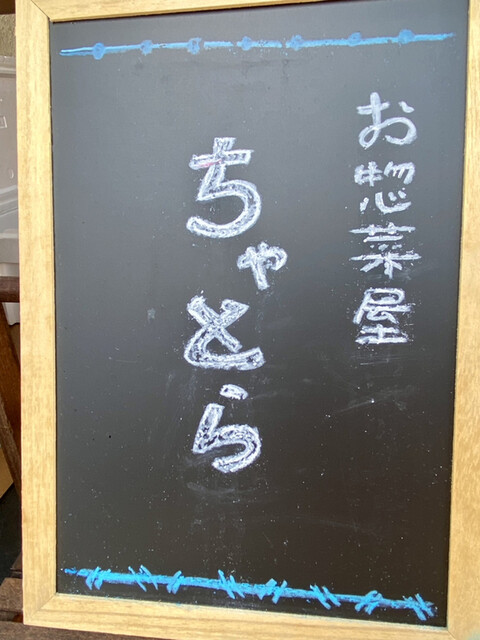 お惣菜屋
ちゃとら